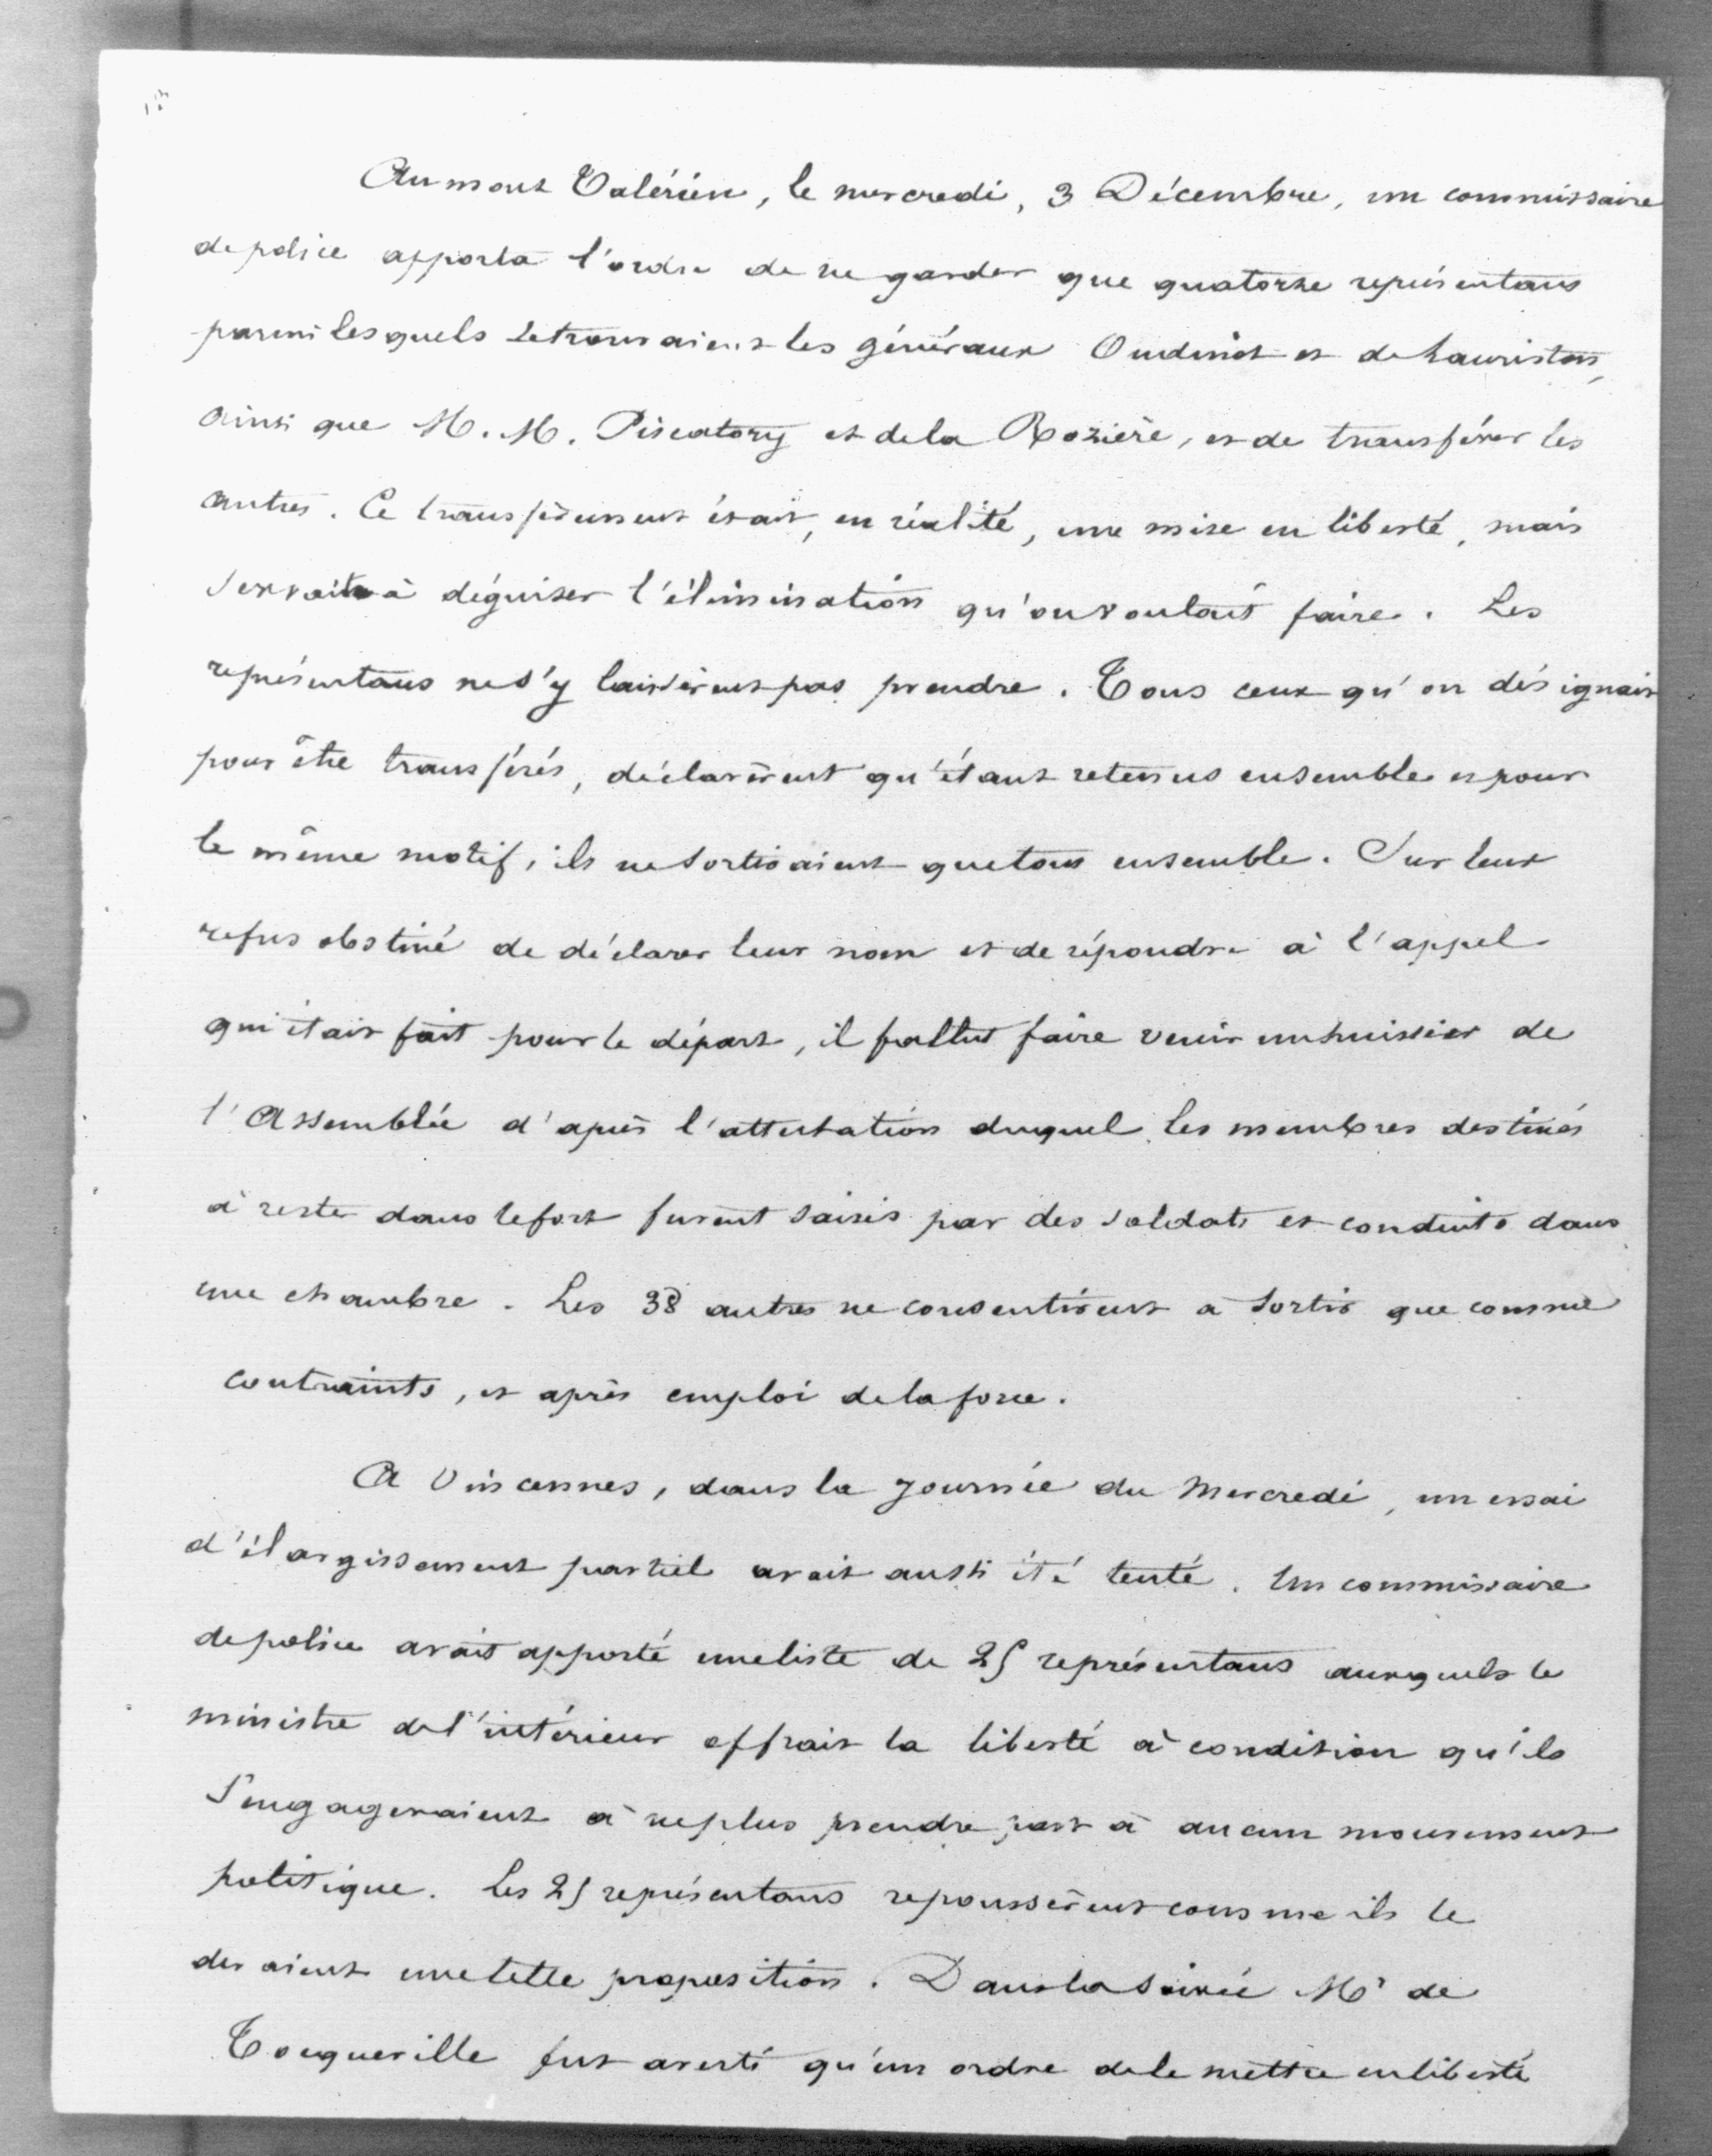 Au mont Valérien, le mercredi, 3 Décembre, un commissaire
de police apporta l'ordre de ne garder que quatorze représentans
parmi lesquels se trouvaient les généraux Oudinot et de Lauriston,
ainsi que M. M. Piscatory et de la Rozière, et de transférer les
autres. Ce transfèrement était, en réalité, une mise en liberté, mais
servait à déguiser l'élimination qu'on voulait faire. Les
représentans ne s'y laissèrent pas prendre. Tous ceux qu'on désignait
pour être transférés, déclarèrent qu'étant retenus ensemble et pour
le même motif, ils ne sortiraient que tous ensemble. Sur leur
refus obstiné de déclarer leur nom et de répondre à l'appel
qui était fait pour le départ, il fallut faire venir un huissier de
l'Assemblée d'après l'attestation duquel les membres destinés
à rester dans le fort furent saisis par des soldats et conduits dans
une chambre. Les 38 autres ne consentirent a sortir que comme
contraints, et après emploi de la force.
A Vincennes, dans la journée du Mercredi, un essai
d'élargissement partiel avait aussi été tenté. Un commissaire
de police avait apporté une liste de 25 représentans auxquels le
ministre de l'intérieur offrait la liberté à condition qu'ils
s'engageraient à ne plus prendre part à aucun mouvement
politique. Les 25 représentans repoussèrent comme ils le
devaient une telle proposition. Dans la soirée Mr de
Tocqueville fut averti qu'un ordre de le mettre en liberté